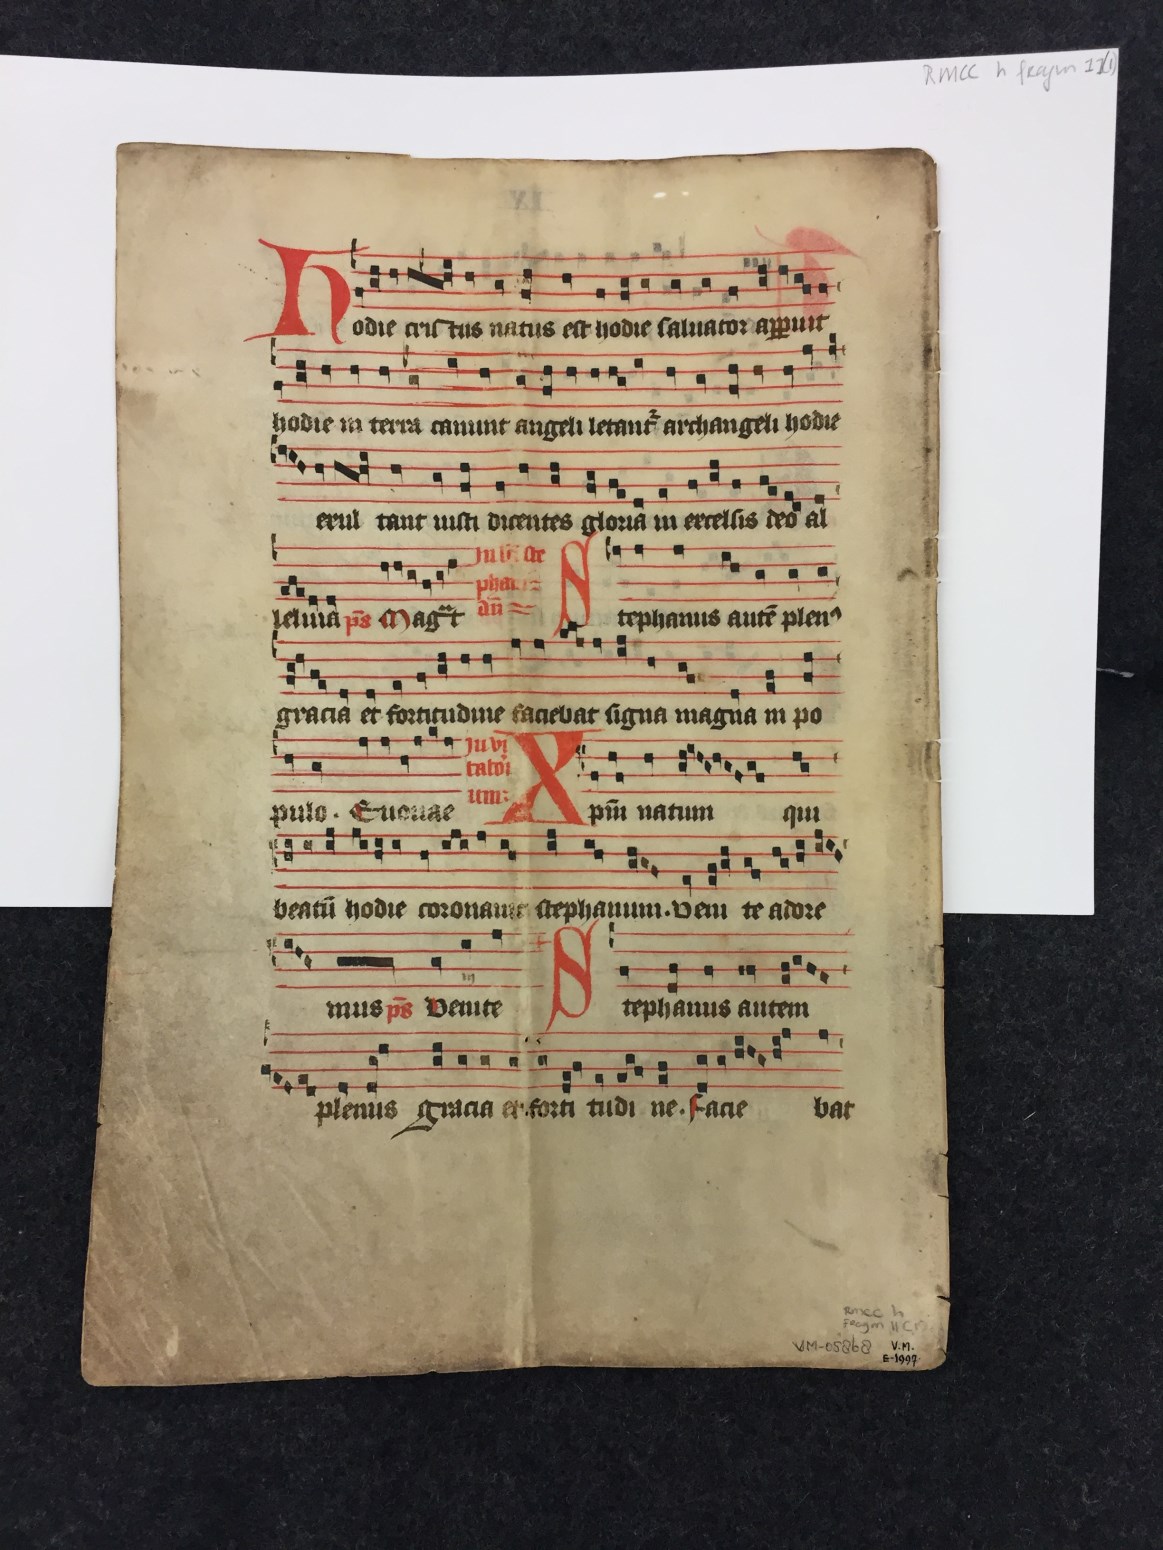 RMCC h fragm 11(1)
LX
Hodie cristus natus est hodie saluator apparuit
hodie in terra canunt angeli letant᷑ archangeli hodie
exul tant iusti dicentes gloria in excelsis deo al
leluia p̄s Mag᷑t In ste
phani
dn̄
Stephanus autē plenꝰ
gracia et fortitudine faciebat signa magna in po
pulo. Euouae In vi
tatori
um:
Xpm̄ natum qui
beatū hodie coronauit stephanum. Veni te adore
mus p̄s Venite Stephanus autem
plenus gracia et forti tudi ne. facie bat
RMCC h
Fragm 11(1)
VM-05868 V.M.
E-1997